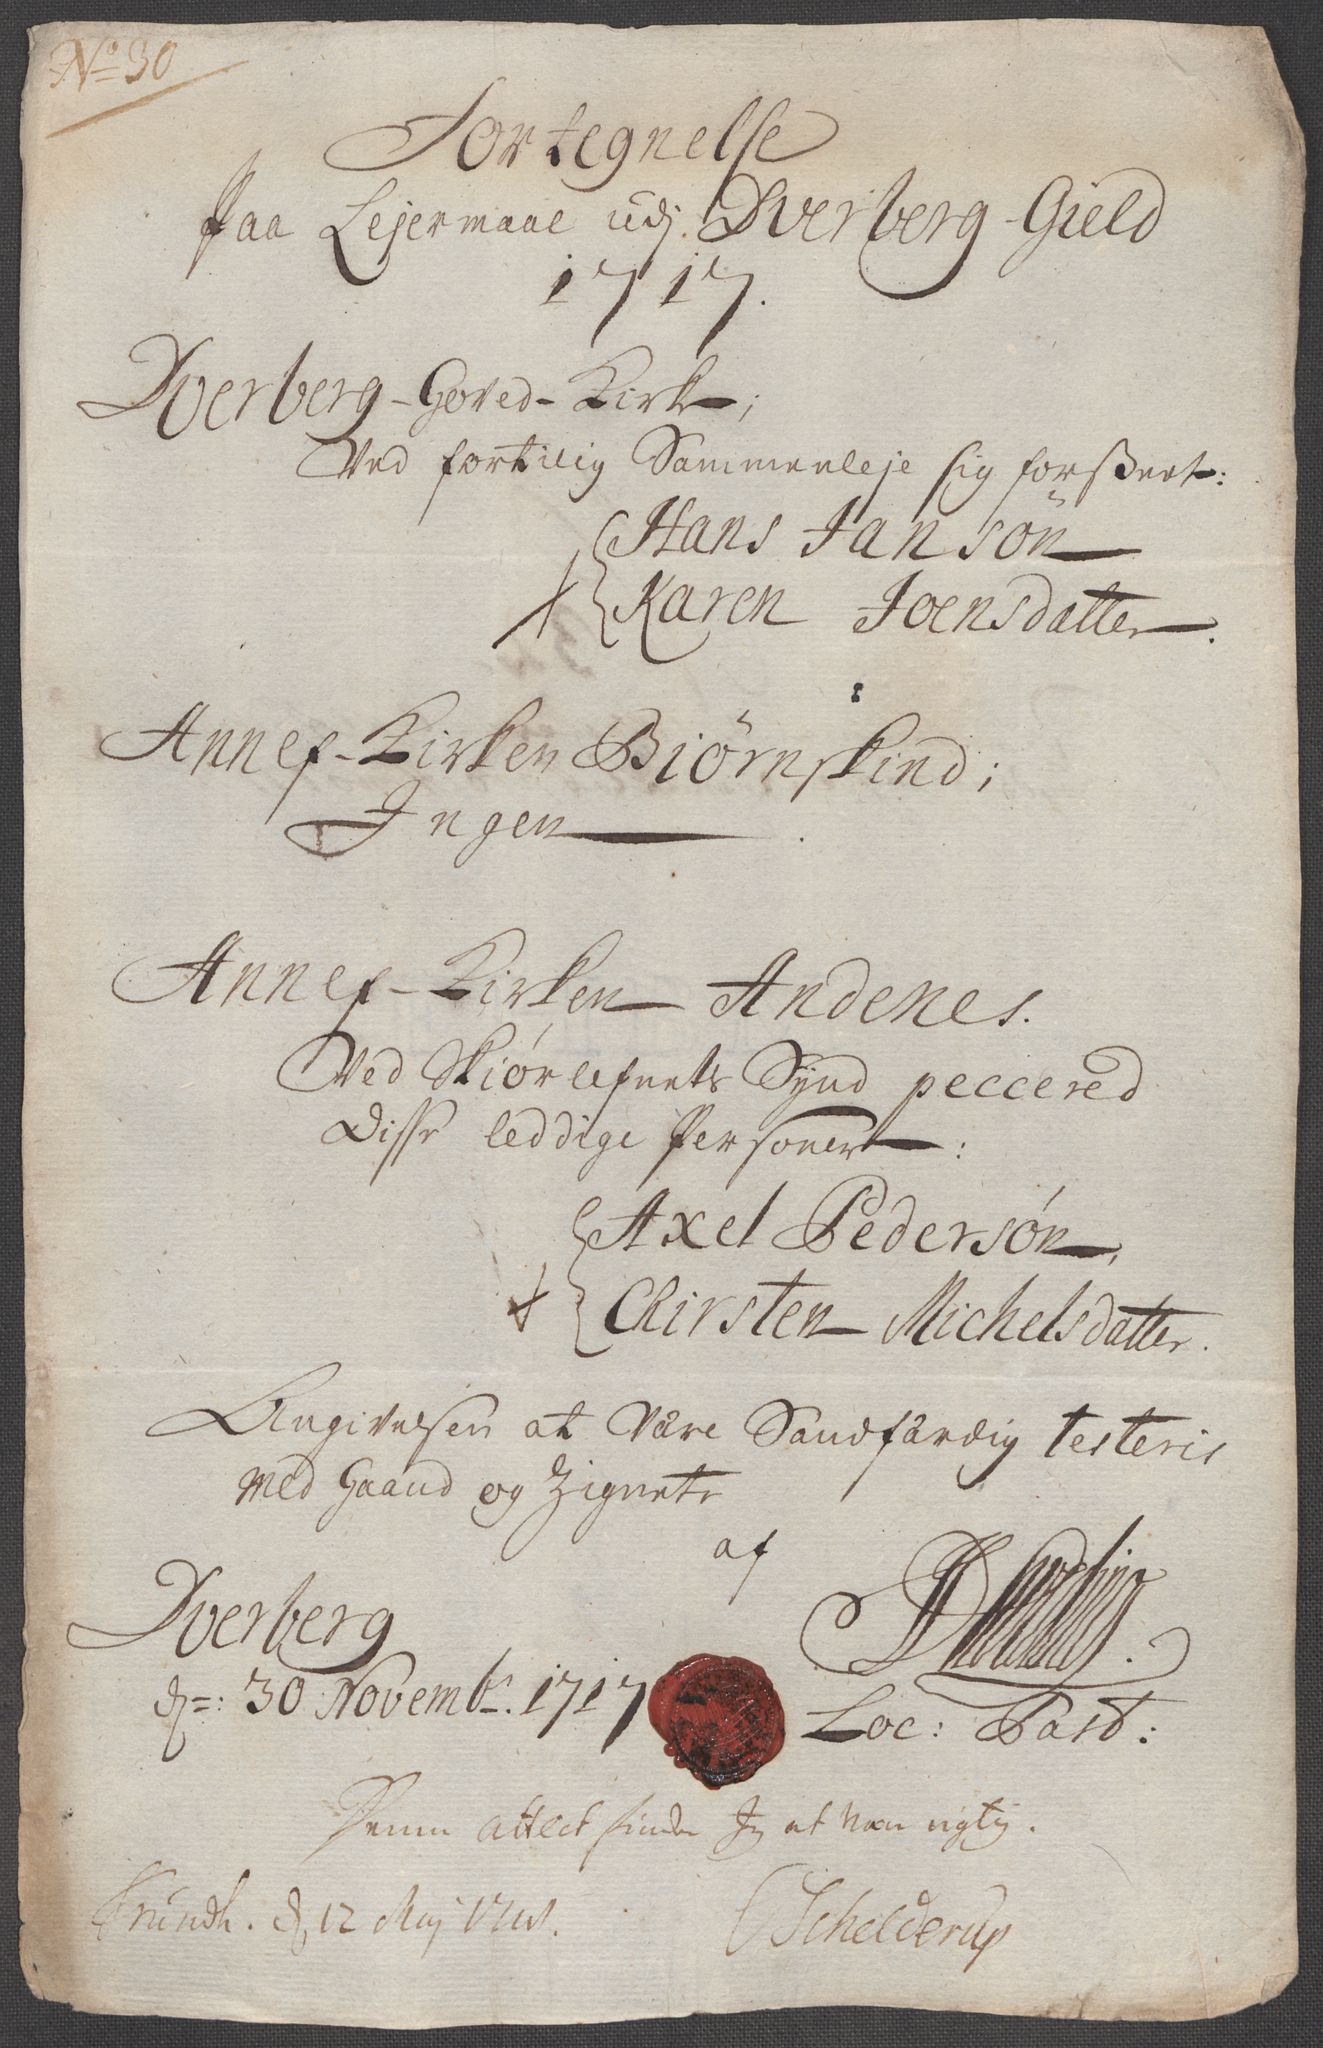 No 30
Fortegnelse
Paa Lejermaal udj Dverberg-Gield
1717.
Dverberg-Hoved-Kirk;
Ved fortilig Sammenleje sig forseet:
Hans Jansön
Karen Joensdatter.
Annex-Kirken Biørnskind;
Ingen
Annex-Kirken Andenes.
Ved Skiørlefnets Synd peccered
disse leddige Personer:
Axel Pedersøn,
Chirsten Michelsdatter.
Angivelsen at være Sandfærdig testeris
med Haand og Zignete
af
Dverberg
d=: 30 Novembr. 1717
Loc: Past:
Denne attest finder Jeg at være rigtig.
Trundh. d 12 Maj
Schelderup